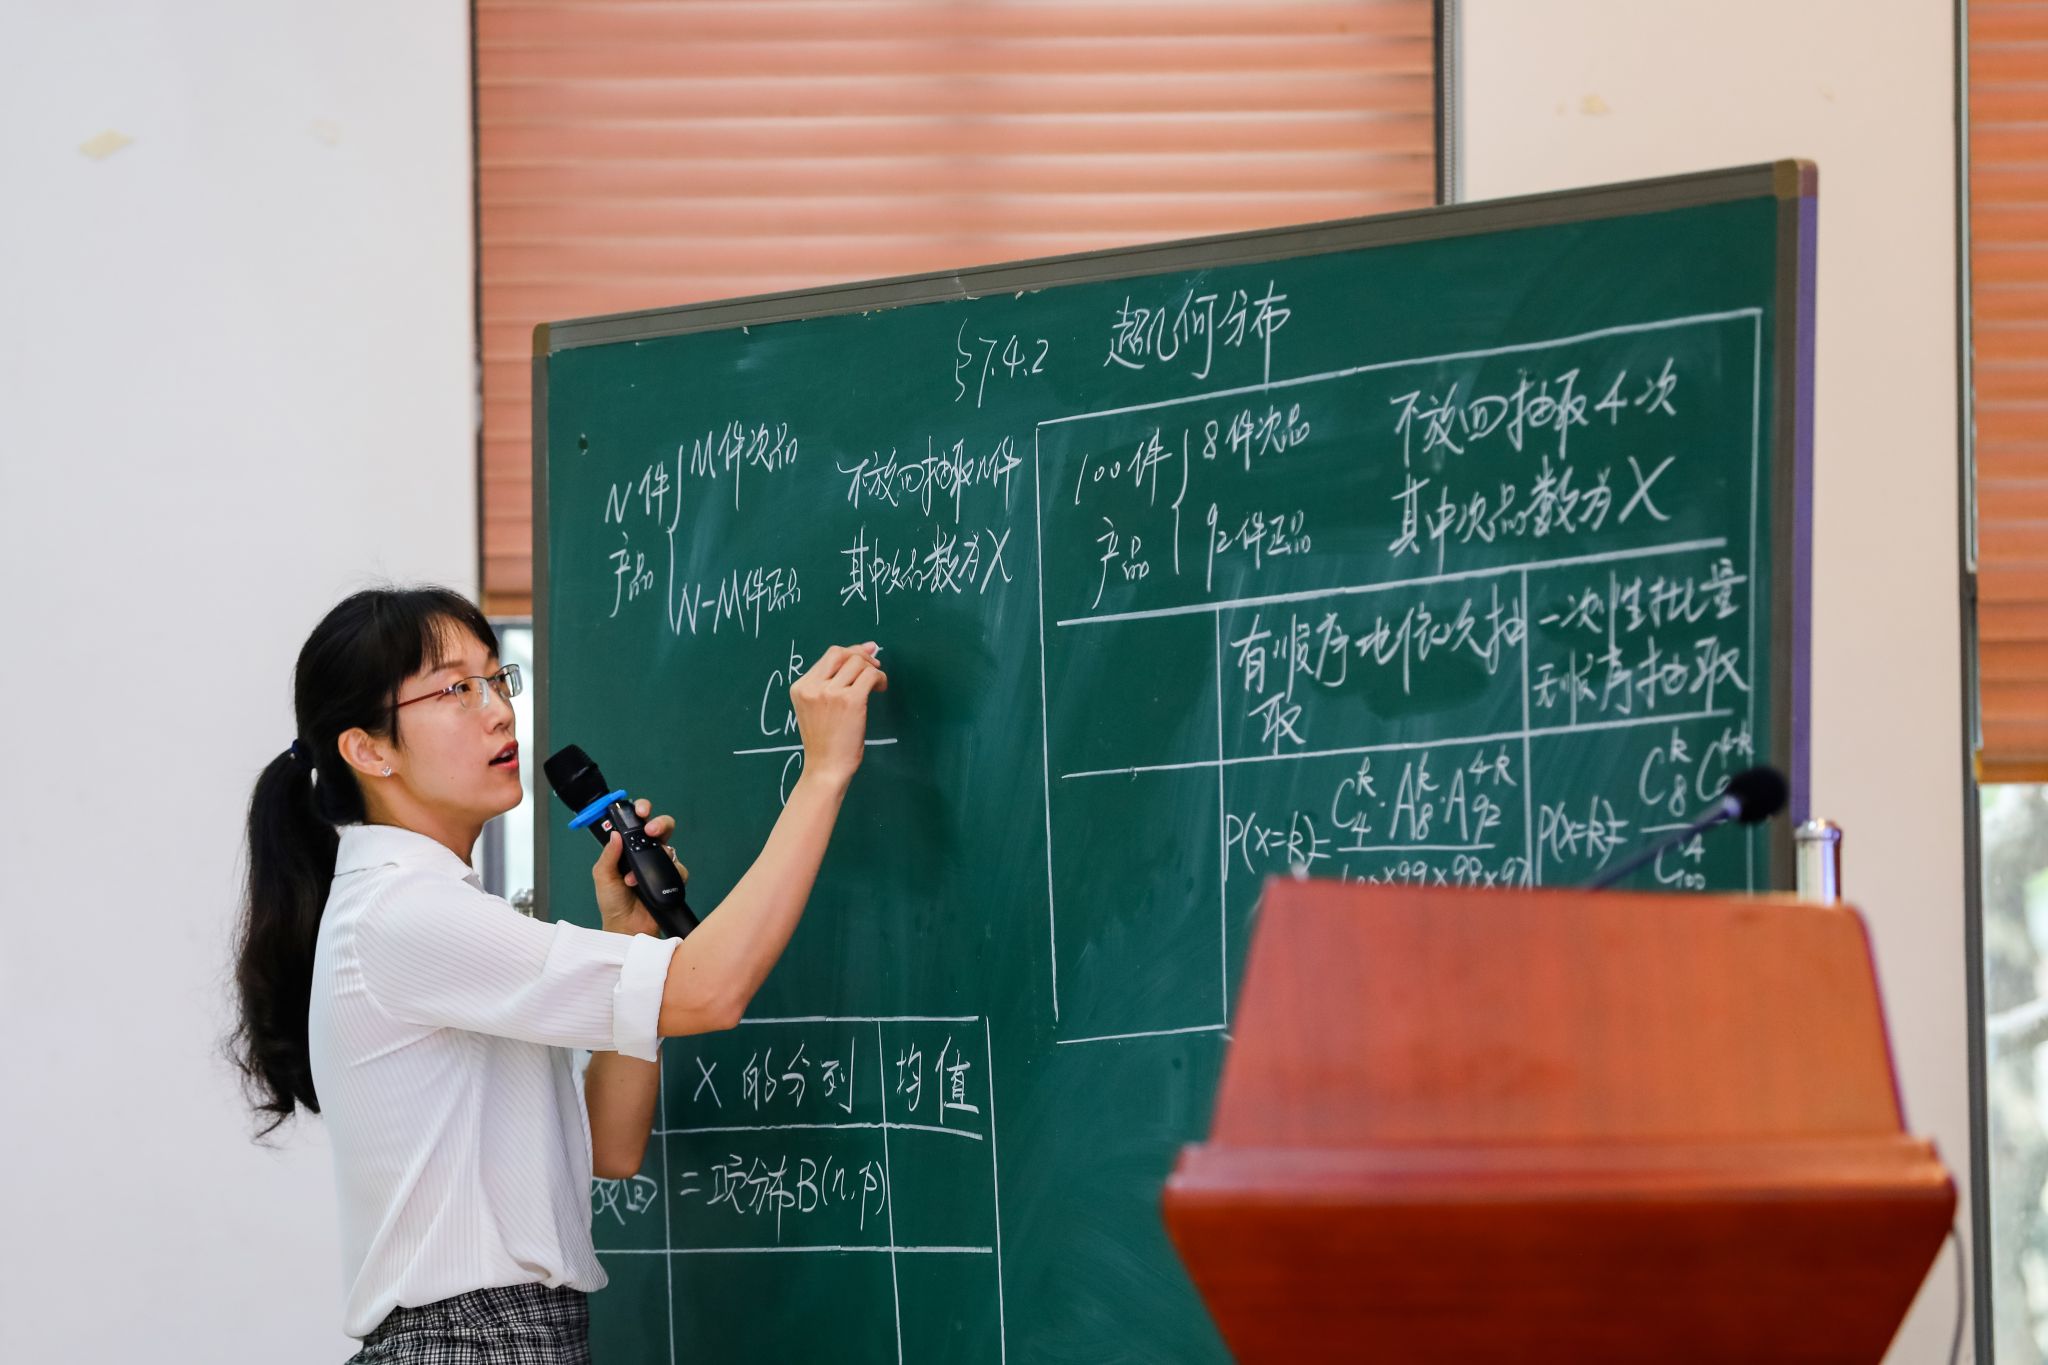 §7.4.2 超几何分布
N件产品
M件次品
N-M件正品
不放回抽取n件
其中次品数为X
C k
100件产品
8件次品
92件正品
不放回抽取4次
其中次品数为X
有顺序地依次抽取
一次性批量无顺序抽取
P(X=k)= C₄ᵏ·A₈ᵏ·A₉₂⁴⁻ᵏ / 100×99×98×97
P(X=k)= C₈ᵏ C⁴⁻ᵏ / C₁₀₀⁴
X的分列 均值
放回 二项分布B(n,p)